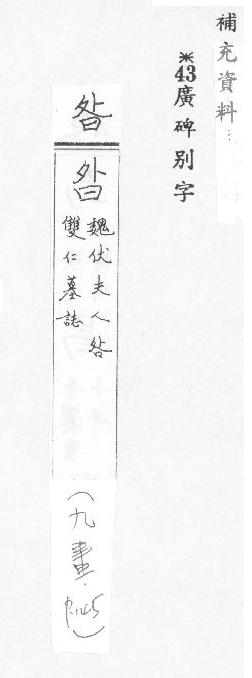 補充資料：
※43廣碑別字
昝
魏伏夫人昝
雙仁墓誌
（九畫．P.145）